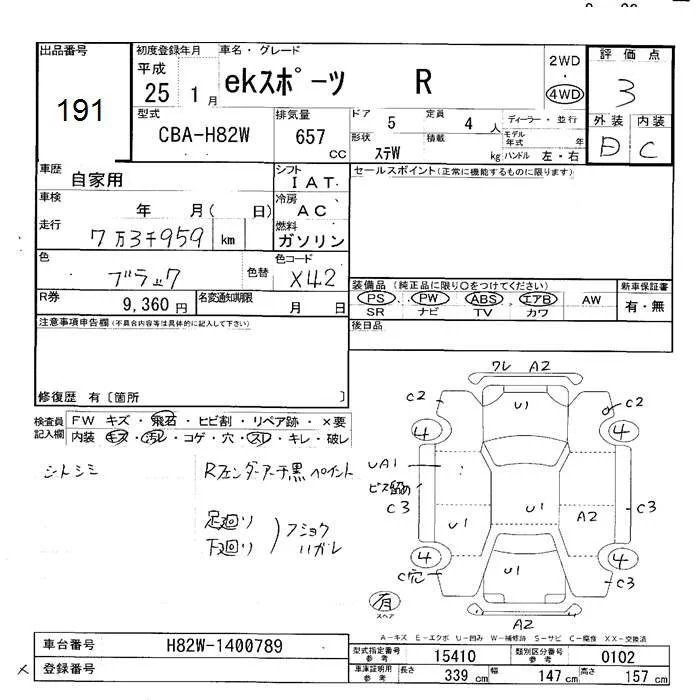 出品番号
191
初度登録年月
平成
25 1 月
車名・グレード
ekスポーツ R
2WD
・
4WD
評価点
3
外装 内装
D C
型式
CBA-H82W
排気量
657
CC
ドア 5 定員 4 人
形状 ステW 積載 kg
ディーラー・並行
モデル
年式 年
ハンドル 左・右
車歴
自家用
シフト
IAT
車検
年 月( 日)
冷房
AC
走行
7万3千959 km
燃料
ガソリン
色
ブラック
色替
色コード
X42
R券
9,360 円
名変通知期限
月 日
セールスポイント(正常に機能するものに限ります)
装備品 (純正品に限り○をつけてください)
PS・PW・ABS・エアB・AW
SR ナビ TV カワ
新車保証書
有・無
後日品
注意事項申告欄(不具合内容等は具体的に記入して下さい)
修復歴 有〔箇所 〕
検査員
記入欄
FW キズ・飛石・ヒビ割・リペア跡・×要
内装 キズ・汚レ・コゲ・穴・スレ・キレ・破レ
シートシミ
Rフェンダーアーチ黒ペイント
足廻り
下廻り
フショク
ハガレ
ワレ A2
C2
U1
C2
4
4
UA1
ビス留め
C3
U1
U1
A2
C3
4
4
C穴
U1
C3
有
スペア
A2
A-キズ E-エクボ U-凹み W-補修跡 S-サビ C-腐食 XX-交換済
車台番号
H82W-1400789
登録番号
×
型式指定番号
参考
15410
類別区分番号
参考
0102
車庫証明用
参考
長さ 339 cm 幅 147 cm 高さ 157 cm